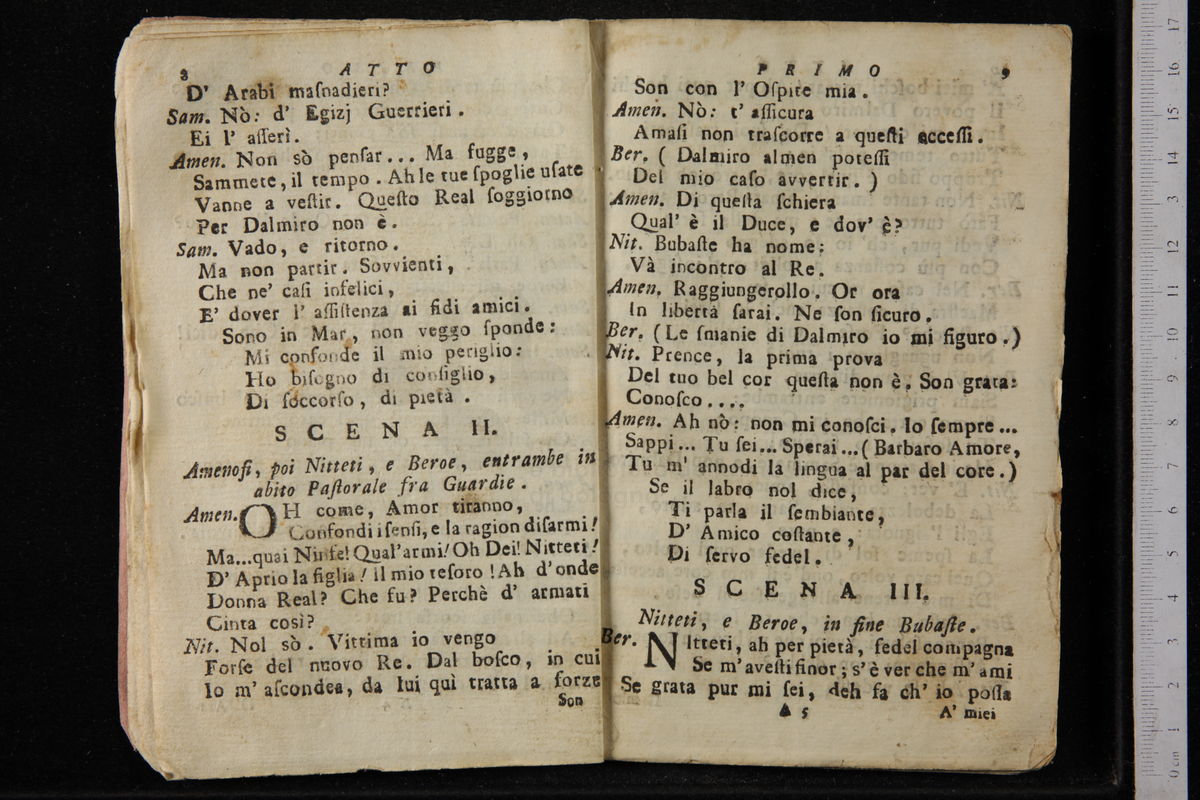 8 ATTO
D' Arabi maſnadieri?
Sam. Nò: d' Egizj Guerrieri.
Ei l' aſſerì.
Amen. Non sò penſar... Ma fugge,
Sammete, il tempo. Ah le tue ſpoglie uſate
Vanne a veſtir. Queſto Real ſoggiorno
Per Dalmiro non è.
Sam. Vado, e ritorno.
Ma non partir. Sovvienti,
Che ne' caſi infelici,
E' dover l' aſſiſtenza ai fidi amici.
Sono in Mar, non veggo ſponde:
Mi confonde il mio periglio:
Ho biſogno di conſiglio,
Di ſoccorſo, di pietà.
SCENA II.
Amenoſi, poi Nitteti, e Beroe, entrambe in
abito Paſtorale fra Guardie.
Amen. OH come, Amor tiranno,
Confondi i ſenſi, e la ragion diſarmi!
Ma...quai Ninfe! Qual'armi! Oh Dei! Nitteti!
D' Aprio la figlia! il mio teſoro! Ah d'onde
Donna Real? Che fu? Perchè d' armati
Cinta così?
Nit. Nol sò. Vittima io vengo
Forſe del nuovo Re. Dal boſco, in cui
Io m' aſcondea, da lui quì tratta a forze
Son
PRIMO 9
Son con l' Oſpite mia.
Amen. Nò: t' aſſicura
Amaſi non traſcorre a queſti acceſſi.
Ber. (Dalmiro almen poteſſi
Del mio caſo avvertir.)
Amen. Di queſta ſchiera
Qual' è il Duce, e dov' è?
Nit. Bubaſte ha nome:
Và incontro al Re.
Amen. Raggiungerollo. Or ora
In libertà ſarai. Ne ſon ſicuro.
Ber. (Le ſmanie di Dalmiro io mi figuro.)
Nit. Prence, la prima prova
Del tuo bel cor queſta non è. Son grata:
Conoſco....
Amen. Ah nò: non mi conoſci. Io ſempre...
Sappi... Tu ſei... Sperai...(Barbaro Amore,
Tu m' annodi la lingua al par del core.)
Se il labro nol dice,
Ti parla il ſembiante,
D' Amico coſtante,
Di ſervo fedel.
SCENA III.
Nitteti, e Beroe, in fine Bubaſte.
Ber. NItteti, ah per pietà, fedel compagna
Se m'aveſti finor; s'è ver che m'ami
Se grata pur mi ſei, deh fa ch' io poſſa
A 5 A' miei
17
16
15
14
13
12
11
10
9
8
7
6
5
4
3
2
1
0 cm